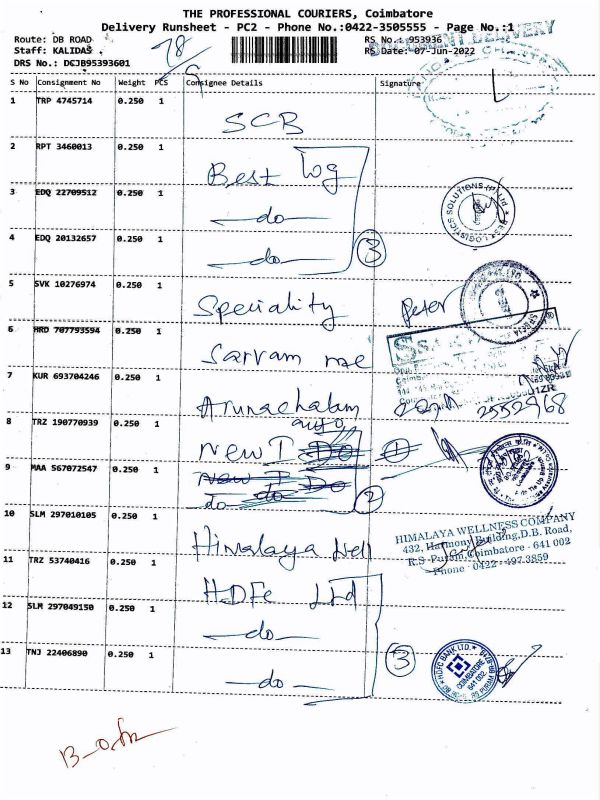 THE PROFESSIONAL COURIERS, Coimbatore
Delivery Runsheet - PC2 - Phone No.:0422-3505555 - Page No.:1
Route: DB ROAD
RS No.: 953936
Staff: KALIDAS
RS Date: 07-Jun-2022
DRS No.: DCJB95393601
28
S No Consignment No Weight PCS Consignee Details Signature
1 TRP 4745714 0.250 1 SCB
2 RPT 3460013 0.250 1 Best log
3 EDQ 22709512 0.250 1 do
4 EDQ 20132657 0.250 1 do 3
5 SVK 10276974 0.250 1 Speciality Peter
6 HRD 707793594 0.250 1 Sarvam
7 KUR 693704246 0.250 1 Arunachalam 2552968
auto
8 TRZ 190770939 0.250 1 New I
9 MAA 567072547 0.250 1 do 2
10 SLM 297010105 0.250 1 Himalaya Well
HIMALAYA WELLNESS COMPANY
432, Harmony Building,D.B. Road,
R.S. Puram, Coimbatore - 641 002
Phone : 0422 - 497 3859
11 TRZ 53740416 0.250 1 HDFC Ltd
12 SLM 297049150 0.250 1 do
13 TNJ 22406890 0.250 1 do 3
HDFC BANK LTD.
COIMBATORE
641 002